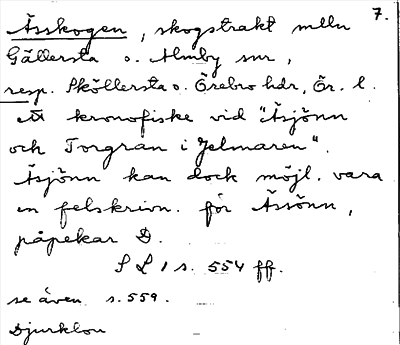 7.
Åsskogen, skogstrakt mlln
Gällersta o. Almby snr,
resp. Sköllersta o. Örebro hdr, Ör. l.
ett kronofiske vid "Åsjönn
och Torgrån i Jelmaren".
Åsjönn kan dock möjl. vara
en felskrivn. för Åssönn,
påpekar D.
S L 1 s. 554 ff.
se även s. 559.
Djurklou